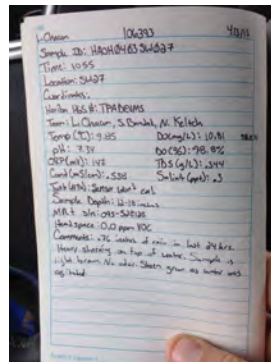 L. Chacon 106393 4/3/13
Sample ID: HAOH0403SW027
Time: 1055
Location: SW27
Coordinates:
Horiba H2S #:
Team: L. Chacon, S.
Temp (°C): 9.85 DO(mg/L): 10.81
pH: 7.34 DO(%): 98.8%
ORP(mV): 147 TDS (g/L): .344
Cond (mS/cm): .538 Salinity (ppt): .3
Turb (NTU): Sensor Won't cal.
Sample Depth: 12-18 inches
Headspace: 0.0 ppm VOC
Comments: .76 inches of rain in last 24 hrs.
Heavy sheening on top of water. Sample is
light brown. No odor. Sheen grew as water was
agitated.